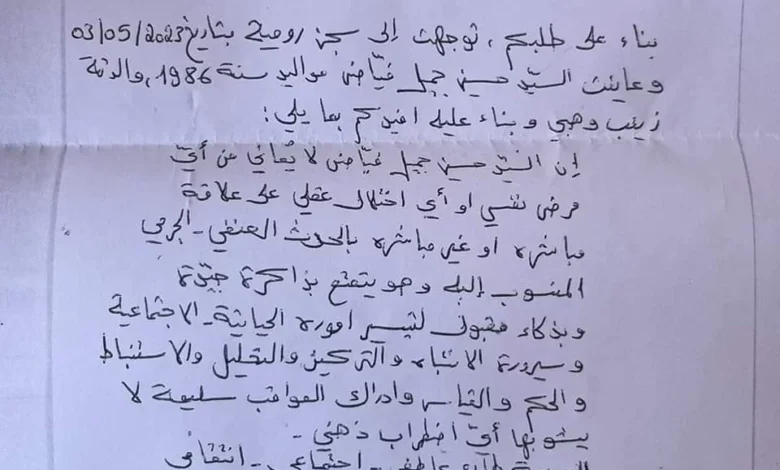 بناء على طلبكم، توجهت إلى سجن رومية بتاريخ 03/05/2023
وعاينت السيّد حسين جميل فيّاض مواليد سنة 1986، والدته
زينب وهبي وبناء عليه افيدكم بما يلي:
إن السيّد حسين جميل فيّاض لا يُعاني من أيّ
مرض نفسي او أي اختلال عقلي على علاقة
مباشره او غير مباشره بالحدث العنفي - الجرمي
المنسوب إليه وهو يتمتع بذاكرة جيّدة
وبذكاء مقبول لتيسير اموره الحياتية - الاجتماعية
وسيرورة الانتباه والتركيز والتحليل والاستنباط
والحكم والقياس وادراك العواقب سليمة لا
يشوبها أيّ اضطراب ذهني -
عاطفي - اجتماعي - انتقامي